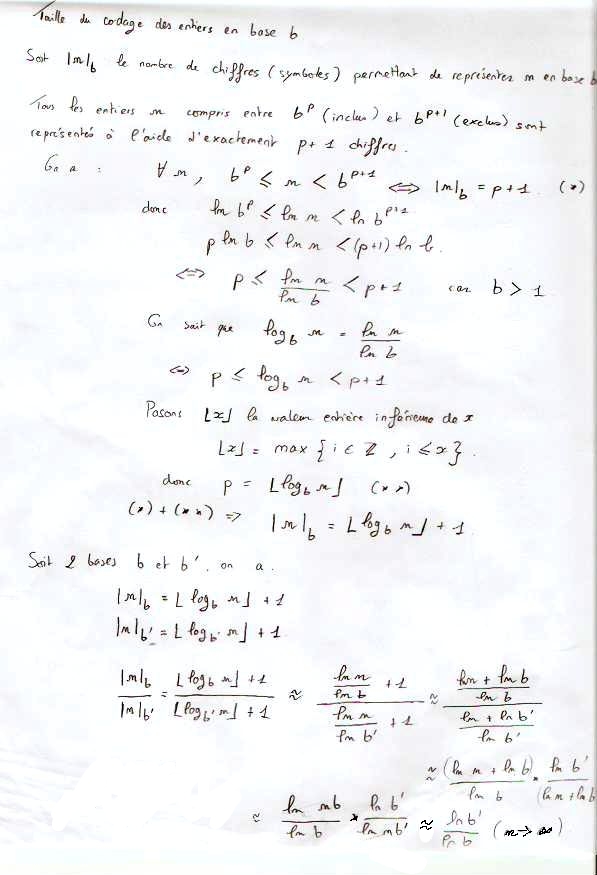 Taille du codage des entiers en base b
Soit |n|_b le nombre de chiffres (symboles) permettant de représenter n en base b
Tous les entiers n compris entre b^p (inclus) et b^{p+1} (exclus) sont
représentés à l'aide d'exactement p+1 chiffres.
On a : ∀ n, b^p ≤ n < b^{p+1} ⟺ |n|_b = p+1. (*)
donc ln b^p ≤ ln n < ln b^{p+1}
p ln b ≤ ln n < (p+1) ln b.
⟺ p ≤ \frac{ln n}{ln b} < p+1 car b > 1
On sait que log_b n = \frac{ln n}{ln b}
⟺ p ≤ log_b n < p+1
Posons ⌊x⌋ la valeur entière inférieure de x
⌊x⌋ = max { i ∈ ℤ, i ≤ x }.
donc p = ⌊log_b n⌋ (**)
(*) + (**) ⇒ |n|_b = ⌊log_b n⌋ + 1
Soit 2 bases b et b'. on a.
|n|_b = ⌊log_b n⌋ + 1
|n|_{b'} = ⌊log_{b'} n⌋ + 1
\frac{|n|_b}{|n|_{b'}} = \frac{⌊log_b n⌋ + 1}{⌊log_{b'} n⌋ + 1} ≈ \frac{\frac{ln n}{ln b} + 1}{\frac{ln n}{ln b'} + 1} ≈ \frac{\frac{ln n + ln b}{ln b}}{\frac{ln n + ln b'}{ln b'}}
≈ \frac{(ln n + ln b)}{ln b} * \frac{ln b'}{(ln n + ln b
≈ \frac{ln nb}{ln b} * \frac{ln b'}{ln nb'} ≈ \frac{ln b'}{ln b} (n → ∞)